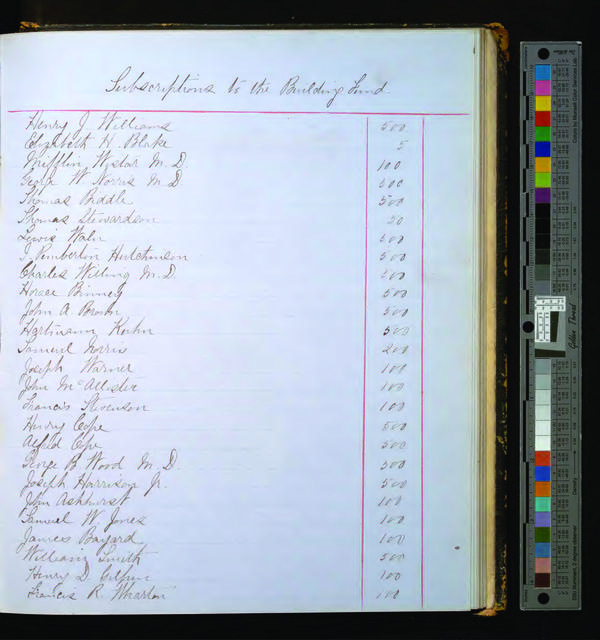 Subscriptions to the Building Fund
Henry J Williams 500
Elizabeth H. Blake 5
Mifflin Wistar M.D. 100
George W Norris M.D. 500
Thomas Biddle 500
Thomas Stewardson 50
Lewis Waln
I. Pemberton Hutchinson 500
Charles Willing M.D.
Horace Binney 500
John A Brown 500
Hartmann Kuhn 500
Samuel Norris 200
Joseph Warner 100
John McAllister 100
Francis Stevenson 100
Henry Cope 500
Alfred Cope 500
George B Wood M.D. 500
Joseph Harrison Jr. 500
John Ashhurst 100
Samuel W. Jones 100
James Bayard 100
William Smith 500
Henry D. Gilpin 100
Francis R. Wharton 100
Golden Thread